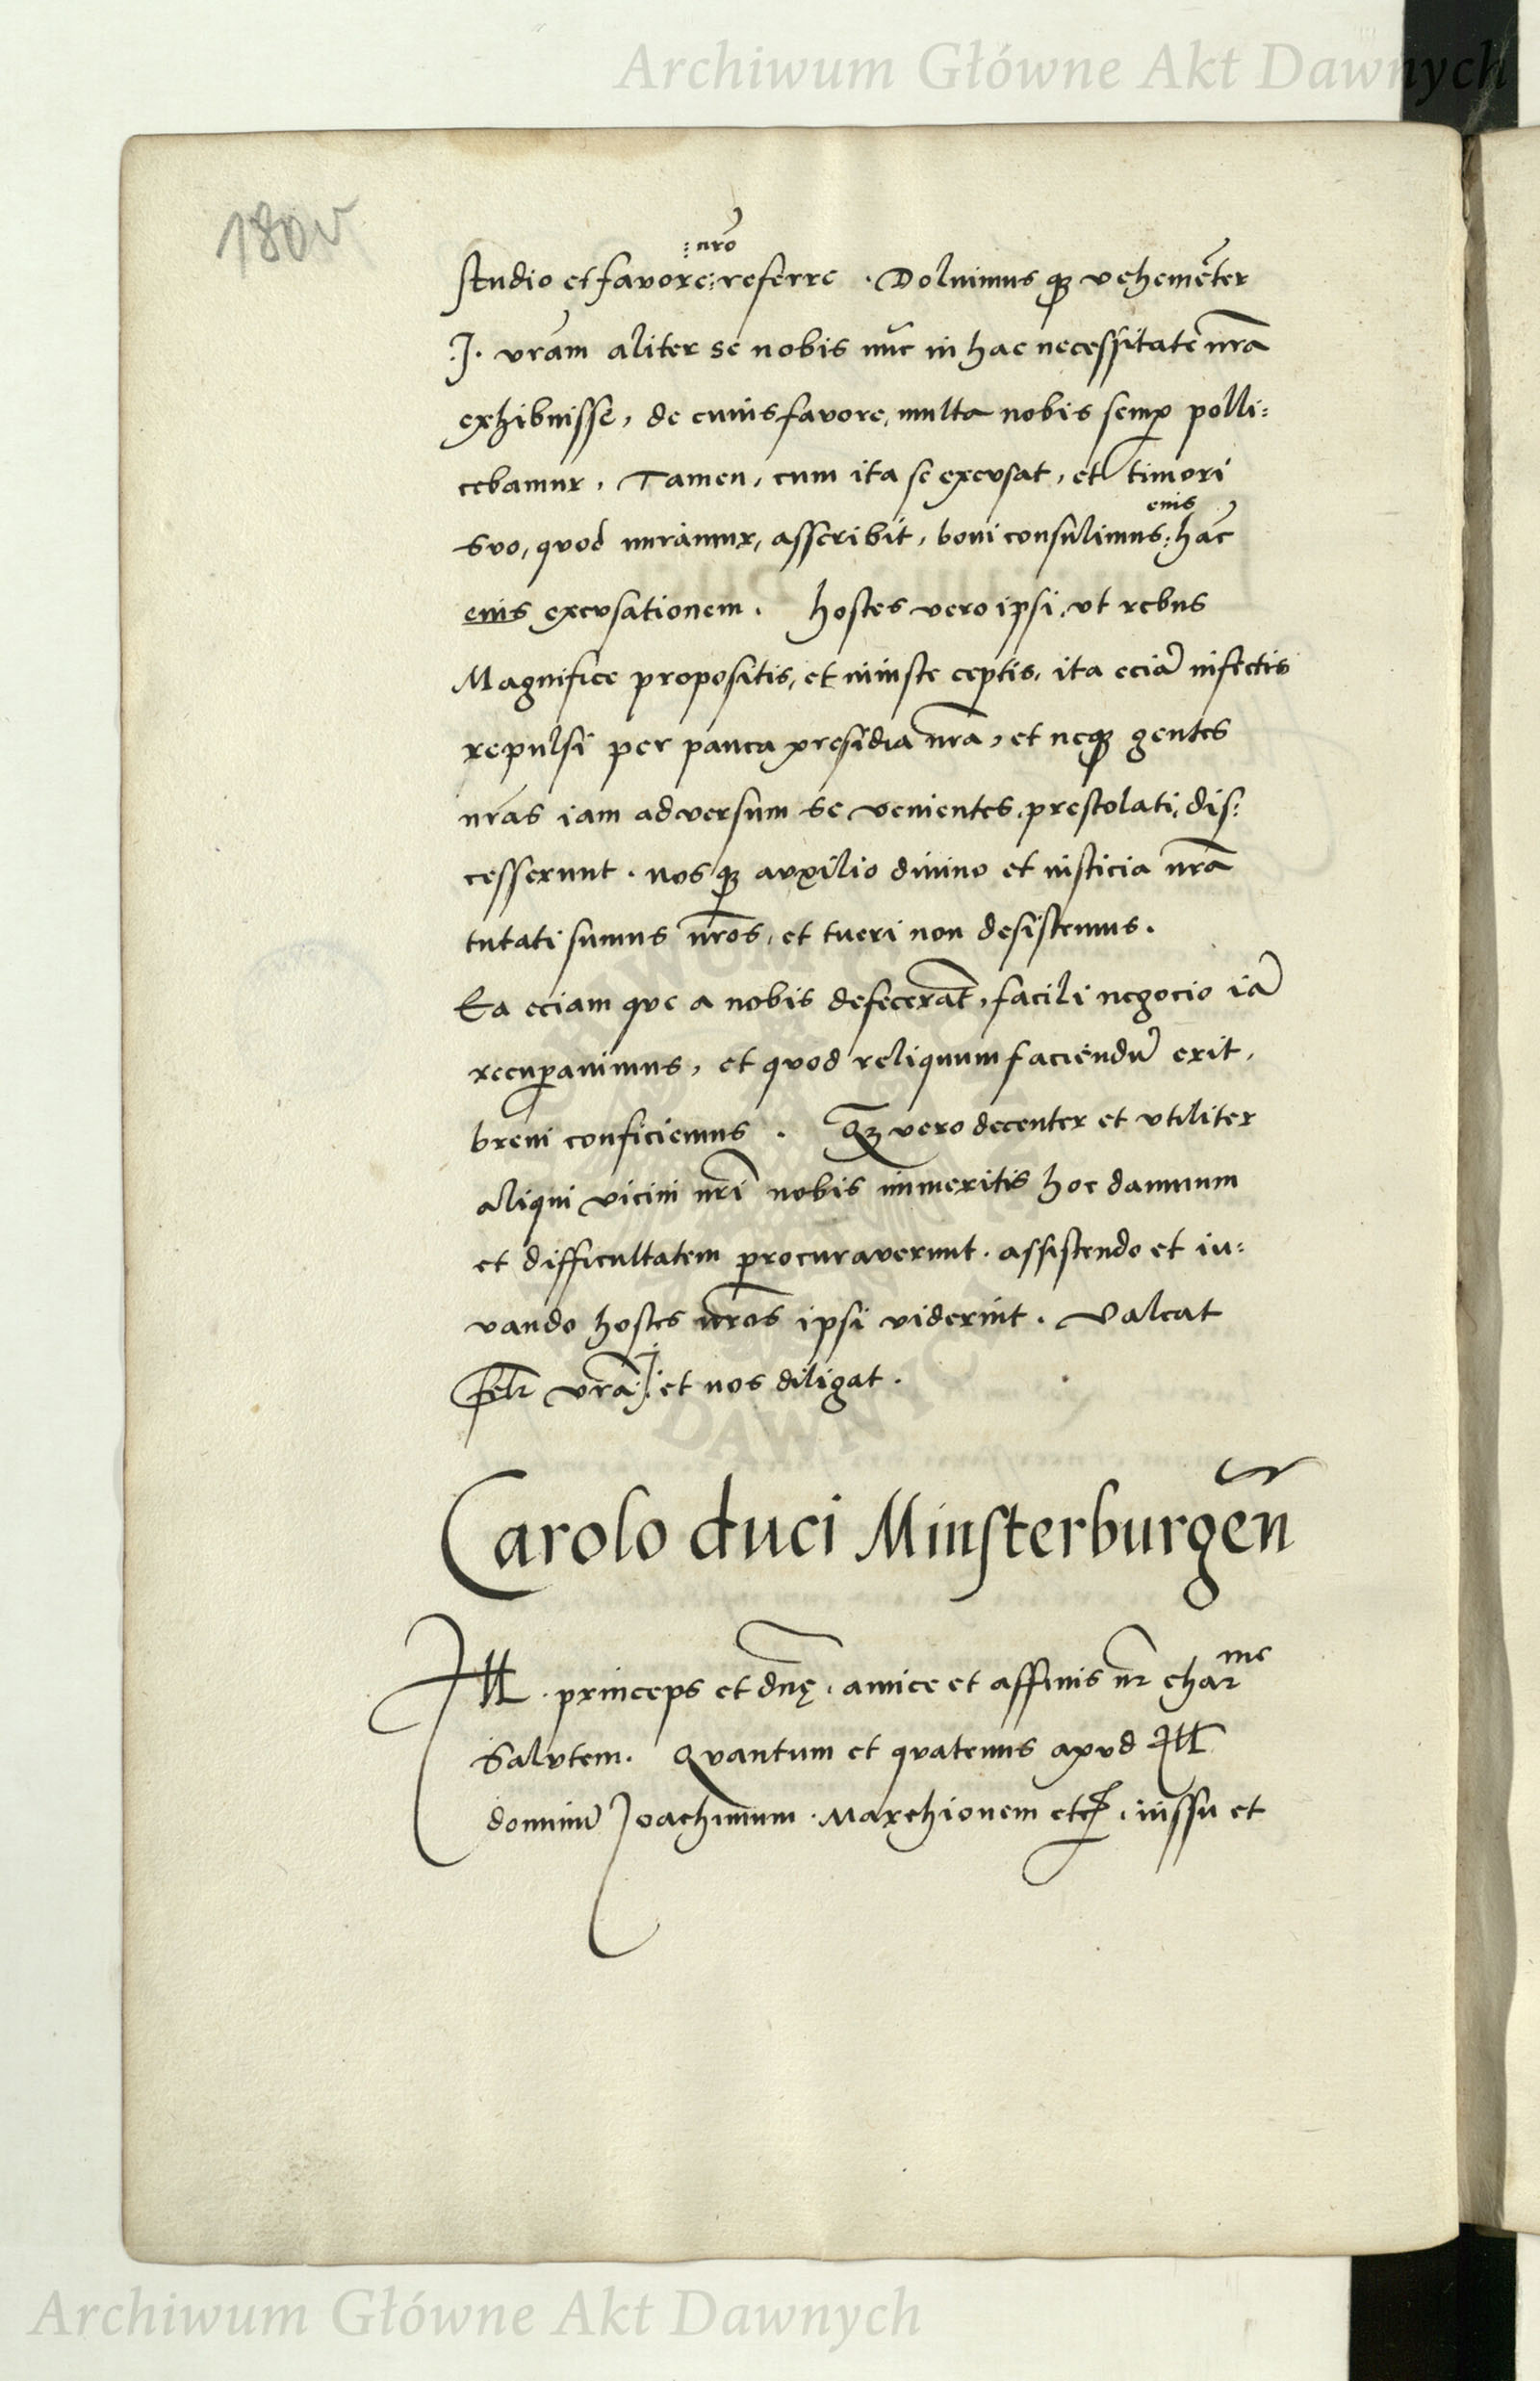 Archiwum Główne Akt Dawnych
180v
:nr̄o
studio et favore: referre. Doluimus qꝫ vehemēter
.J. vr̄am aliter se nobis nūc in hac necessitate nr̄a
exhibuisse, de cuius favore, multa nobis semꝑ polli:
cebamur, Tamen, cum ita se excusat, et timori
eius
suo, quod miramur, asscribit, boni consulimus: hāc
eius excusationem. hostes vero ipsi, vt rebus
Magnifice propositis, et iniuste ceptis, ita eciā infectis
repulsi per pauca presidia nr̄a, et neqꝫ gentes
nr̄as iam adversum se venientes, prestolati, dis:
cesserunt. nosqꝫ auxilio divino et iusticia nr̄a
tutati sumus nr̄os, et tueri non desistemus.
Ea eciam que a nobis defecerāt, facili negocio iā
recuꝑavimus, et quod reliquum faciendū erit,
brevi conficiemus. Qꝫ vero decenter et vtiliter
aliqui vicini nr̄i nobis immeritis hoc damnum
et difficultatem procuraverunt. assistendo et iu:
vando hostes nr̄os ipsi viderint. Valeat
felr̄ vr̄a .J. et nos diligat.
Carolo duci Minsterburgēn
Ill. princeps et dn̄ę, amice et affinis nr̄ char^me
Salutem. Quantum et quatenus apud Ill
dominū Joachimum. Marchionem etc, iussu et
ARCHIWUM GŁÓWNE AKT DAWNYCH
Archiwum Główne Akt Dawnych